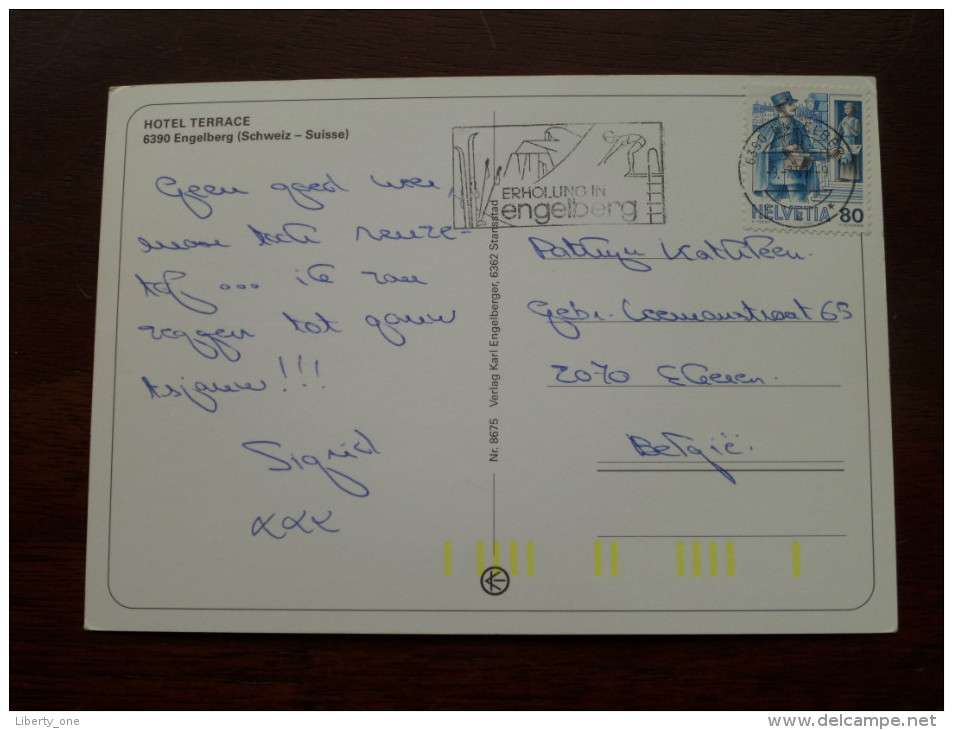 HOTEL TERRACE
6390 Engelberg (Schweiz – Suisse)
Geen goed weer,
maar toch reuze-
tof ... ik zou
zeggen tot gauw
tsjauw!!!
Sigrid
xxx
Nr. 8675 Verlag Karl Engelberger, 6362 Stansstad
ERHOLUNG IN
engelberg
6390 ENGELBERG
HELVETIA 80
Pattyn Kathleen.
Gebr. 65
2070 Ekeren.
België.
Liberty_one
www.delcampe.net